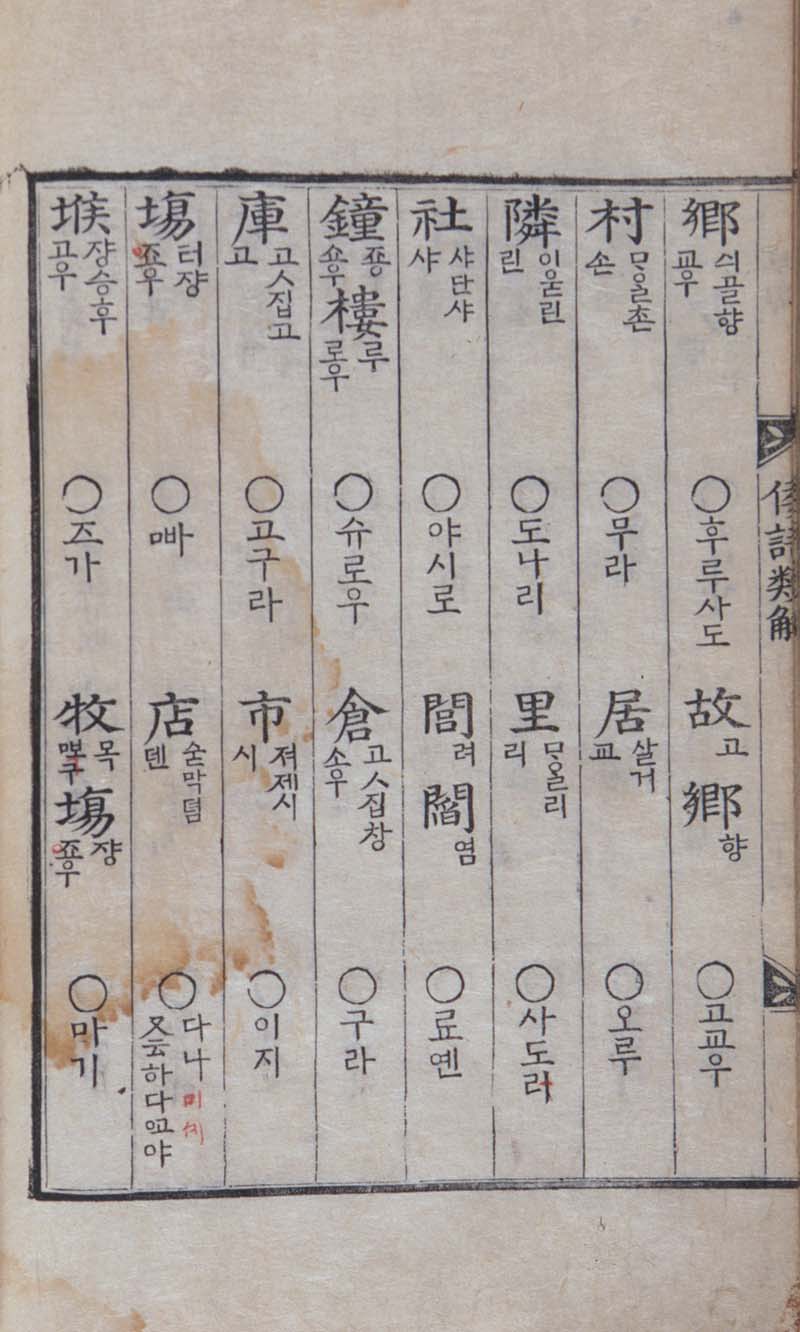 倭語類解
鄕 싀골향 교우 ○후루사도 故 고 鄕 향 ○고교우
村 ᄆᆞᄋᆞᆯ촌 손 ○무라 居 살거 교 ○오루
隣 이욷린 린 ○도나리 里 ᄆᆞᄋᆞᆯ리 리 ○사도라
社 샤단샤 샤 ○야시로 閭 려 閻 염 ○료옌
鐘 죵 쇼우 樓 루 로우 ○슈로우 倉 고ㅅ집창 소우 ○구라
庫 고ㅅ집고 고 ○고구라 市 져제시 시 ○이지
塲 터쟝 죠우 ○ᄲᅡ 店 숟막뎜 뎬 ○다나 미셰 又云하다ᅌᅩ야
堠 쟝승후 고우 ○즈가 牧 목 塲 쟝 죠우 ○마기